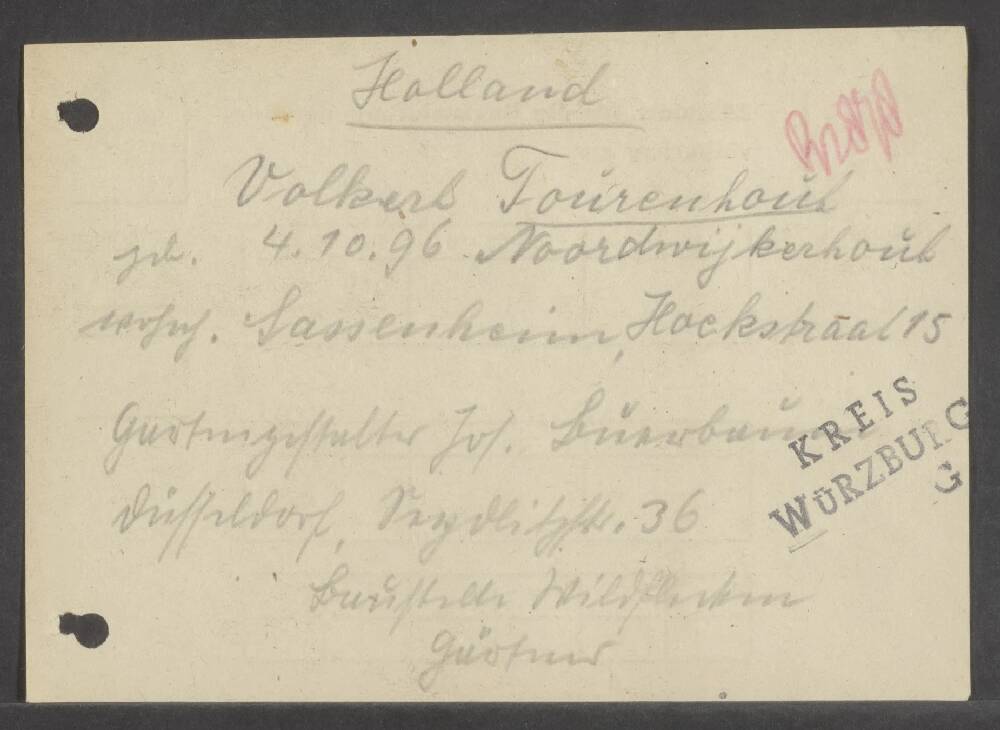 Holland
Volkert Tourenhout
geb. 4.10.96 Noordwijkerhout
wohnh. Sassenheim, Hoekstraat 15
Gartengestalter Jos. Buerbaum
Düsseldorf, Seydlitzstr. 36
Baustelle Wildflecken
Gärtner
KREIS
WÜRZBURG
G